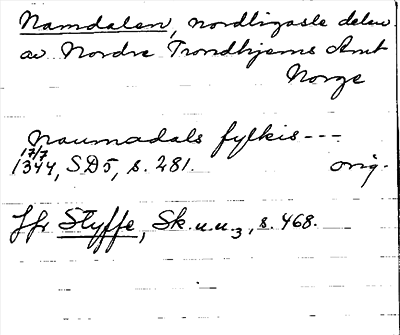 Namdalen, nordligaste delen
av Nordre Trondhjems Amt
Norge
Naumadals fylkis ---
17/7
1344, SD5, s. 281. orig.
Jfr Styffe, Sk.u.u3, s. 468.